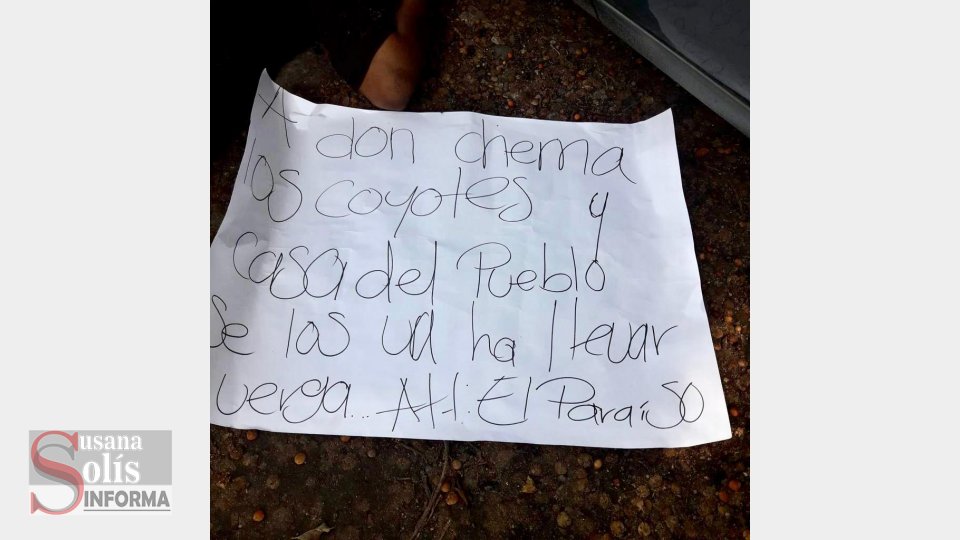 A don chema
los coyotes y
Casa del Pueblo
se los va ha llevar
verga... Att: El Paraiso
Susana
Solís
INFORMA